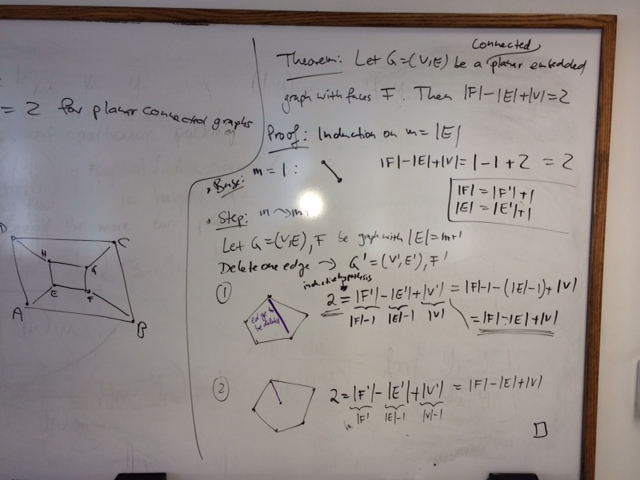 = 2 for planar connected graphs
D
C
H
G
E
F
A
B
connected
Theorem: Let G=(V,E) be a planar embedded
graph with faces F. Then |F|-|E|+|V|=2
Proof: Induction on m=|E|
Base: m=1: |F|-|E|+|V|=1-1+2 = 2
|F|=|F'|+1
|E|=|E'|+1
Step: m→m
Let G=(V,E), F be graph with |E|=m+1
Delete one edge → G'=(V',E'), F'
inductive hypothesis
① 2 = |F'|-|E'|+|V'| = |F|-1-(|E|-1)+|V|
|F|-1 |E|-1 |V|
= |F|-|E|+|V|
Edge to
be deleted
② 2=|F'|-|E'|+|V'| = |F|-|E|+|V|
|F| |E|-1 |V|-1